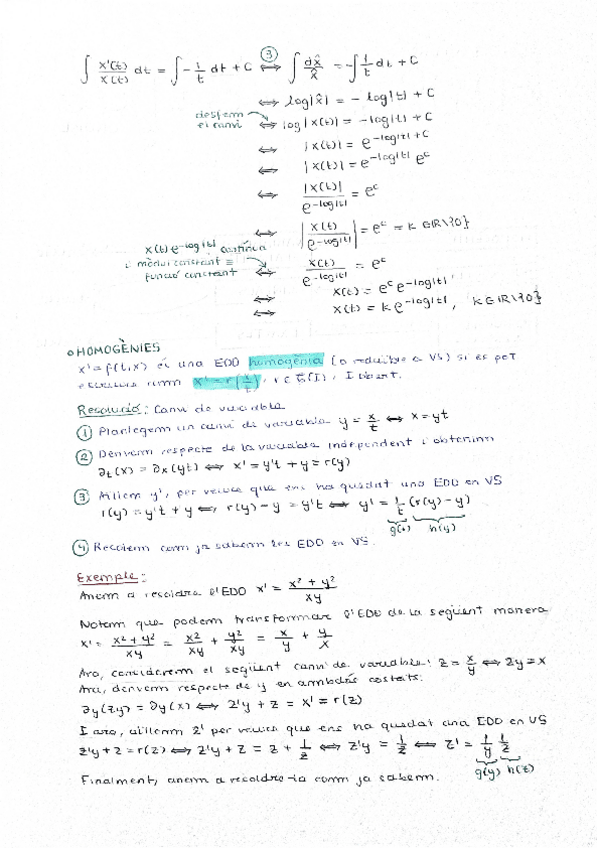 ∫ x'(t)/x(t) dt = ∫ -1/t dt + C ⟺ ③ ∫ dx̂/x̂ = -∫ 1/t dt + C
⟺ log|x̂| = - log|t| + C
desfem el canvi ⟺ log|x(t)| = -log|t| + C
⟺ |x(t)| = e^(-log|t| + C)
⟺ |x(t)| = e^(-log|t|) e^c
⟺ |x(t)| / e^(-log|t|) = e^c
⟺ |x(t) / e^(-log|t|)| = e^c = k ∈ ℝ\{0}
x(t) e^(-log|t|) contínua i mòdul constant ≡ funció constant
⟺ x(t) / e^(-log|t|) = e^c
⟺ x(t) = e^c e^(-log|t|)
⟺ x(t) = k e^(-log|t|), k ∈ ℝ\{0}
HOMOGÈNIES
x' = f(t,x) és una EDO homogènia (o reduïble a VS) si es pot
escriure com x' = r(x/t), r ∈ (I), I obert.
Resolució: Canvi de variable
① Plantegem un canvi de variable y = x/t ⟺ x = yt
② Derivem respecte de la variable independent i obtenim
∂t(x) = ∂x(yt) ⟺ x' = y't + y = r(y)
③ Aïllem y', per veure que ens ha quedat una EDO en VS
r(y) = y't + y ⟺ r(y) - y = y't ⟺ y' = 1/t (r(y) - y)
g(t) h(y)
④ Resolem com ja sabem les EDO en VS.
Exemple:
Anem a resoldre l'EDO x' = (x² + y²)/xy
Notem que podem transformar l'EDO de la següent manera
x' = (x² + y²)/xy = x²/xy + y²/xy = x/y + y/x
Ara, considerem el següent canvi de variable: z = x/y ⟺ zy = x
Ara, derivem respecte de y en ambdós costats:
∂y(zy) = ∂y(x) ⟺ z'y + z = x' = r(z)
I ara, aïllem z' per veure que ens ha quedat una EDO en VS
z'y + z = r(z) ⟺ z'y + z = z + 1/z ⟺ z'y = 1/z ⟺ z' = 1/y 1/z
g(y) h(z)
Finalment, anem a resoldre-la com ja sabem.